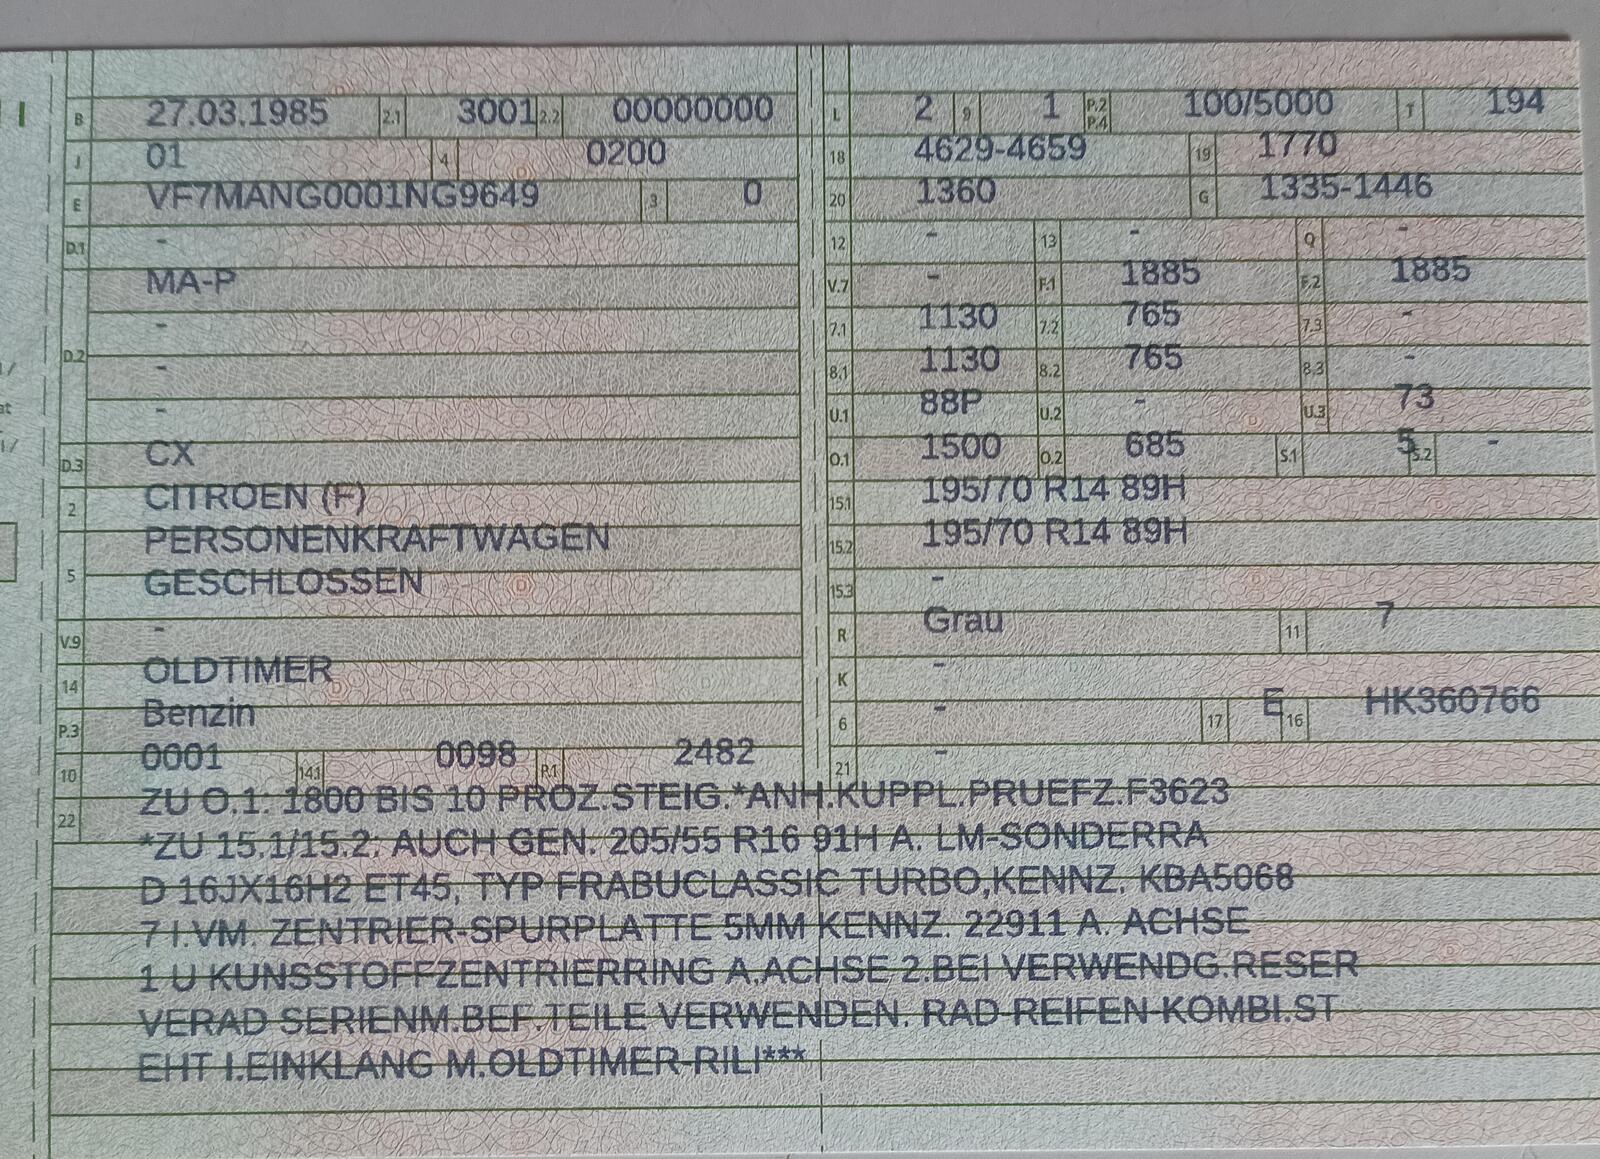 B 27.03.1985 2.1 3001 2.2 00000000
J 01 4 0200
E VF7MANG0001NG9649 3 0
D.1 -
MA-P
-
D.2 -
-
D.3 CX
2 CITROEN (F)
PERSONENKRAFTWAGEN
5 GESCHLOSSEN
V.9 -
14 OLDTIMER
P.3 Benzin
10 0001 14.1 0098 P.1 2482
L 2 9 1 P.2 P.4 100/5000 T 194
18 4629-4659 19 1770
20 1360 G 1335-1446
12 - 13 - Q -
V.7 - F.1 1885 F.2 1885
7.1 1130 7.2 765 7.3 -
8.1 1130 8.2 765 8.3 -
U.1 88P U.2 - U.3 73
O.1 1500 O.2 685 S.1 5 S.2 -
15.1 195/70 R14 89H
15.2 195/70 R14 89H
15.3 -
R Grau 11 7
K -
6 - 17 E 16 HK360766
21 -
22 ZU O.1: 1800 BIS 10 PROZ.STEIG.*ANH.KUPPL.PRUEFZ.F3623
*ZU 15.1/15.2: AUCH GEN. 205/55 R16 91H A. LM-SONDERRA
D 16JX16H2 ET45, TYP FRABUCLASSIC TURBO,KENNZ. KBA5068
7 I.VM. ZENTRIER-SPURPLATTE 5MM KENNZ. 22911 A. ACHSE
1 U KUNSSTOFFZENTRIERRING A.ACHSE 2.BEI VERWENDG.RESER
VERAD SERIENM.BEF.TEILE VERWENDEN. RAD-REIFEN-KOMBI.ST
EHT I.EINKLANG M.OLDTIMER-RILI***